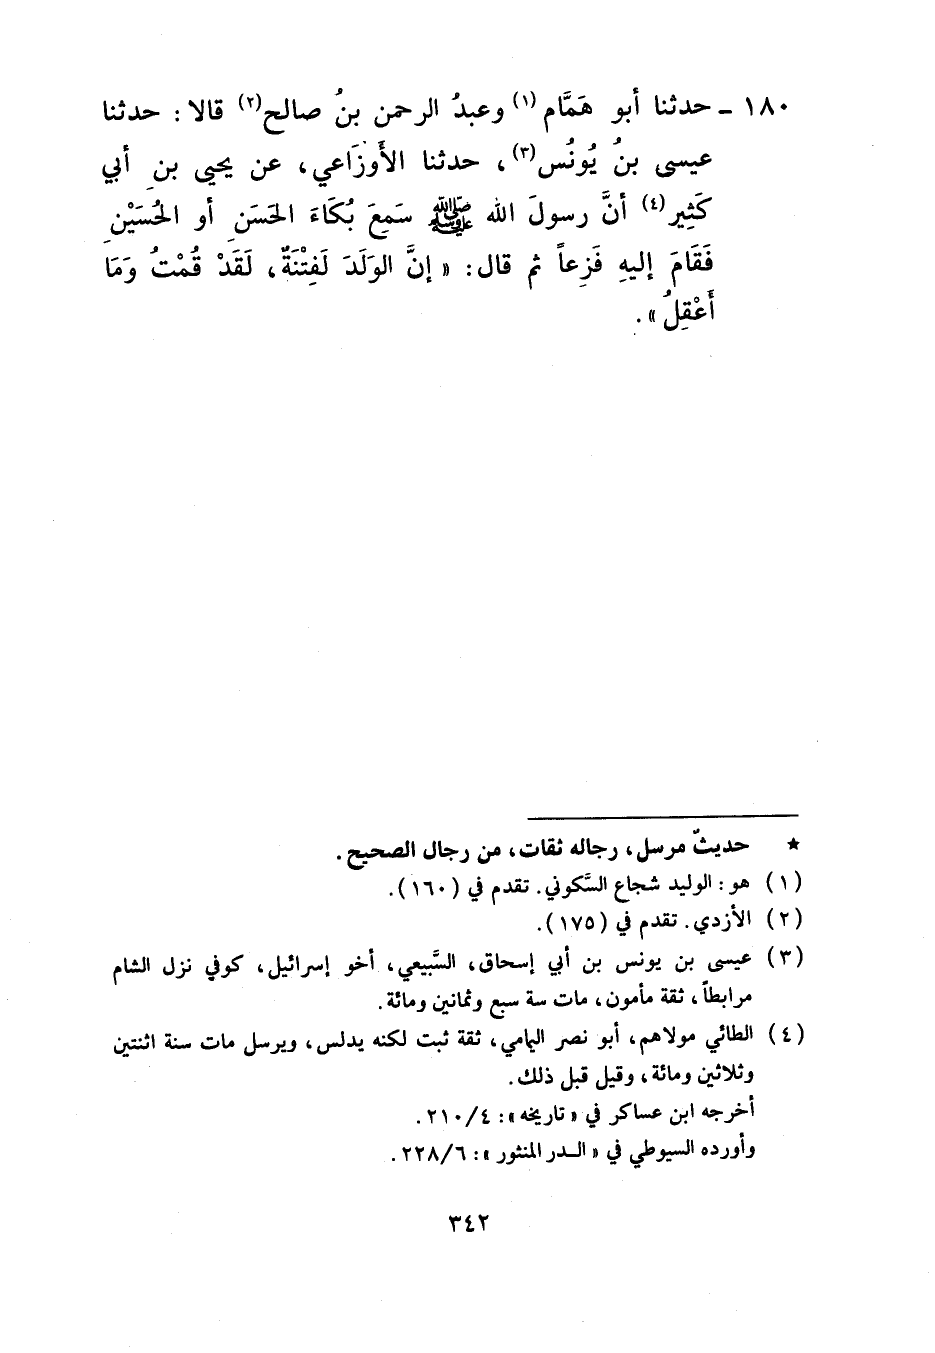 ١٨٠ ـ حدثنا أبو هَمَّام (١) وعبدُ الرحمن بنُ صالح(٢) قالا: حدثنا
عيسى بنُ يُونُس(٣)، حدثنا الأَوزَاعي، عن يحيى بن أبي
كَثِير(٤) أنَّ رسولَ الله ﷺ سَمِعَ بُكَاءَ الحَسَنِ أو الحُسَيْنِ
فَقَامَ إليهِ فَزِعاً ثم قال: « إنَّ الوَلَدَ لَفِتْنَةٌ، لَقَدْ قُمْتُ وَمَا
أَعْقِلُ ».
★ حديثٌ مرسل، رجاله ثقات، من رجال الصحيح.
(١) هو: الوليد شجاع السَّكوني. تقدم في (١٦٠).
(٢) الأزدي. تقدم في (١٧٥).
(٣) عيسى بن يونس بن أبي إسحاق، السَّبيعي، أخو إسرائيل، كوفي نزل الشام
مرابطاً، ثقة مأمون، مات سة سبع وثمانين ومائة.
(٤) الطائي مولاهم، أبو نصر اليمامي، ثقة ثبت لكنه يدلس، ويرسل مات سنة اثنتين
وثلاثين ومائة، وقيل قبل ذلك.
أخرجه ابن عساكر في « تاريخه »: ٢١٠/٤.
وأورده السيوطي في « الـدر المنثور »: ٢٢٨/٦.
٣٤٢